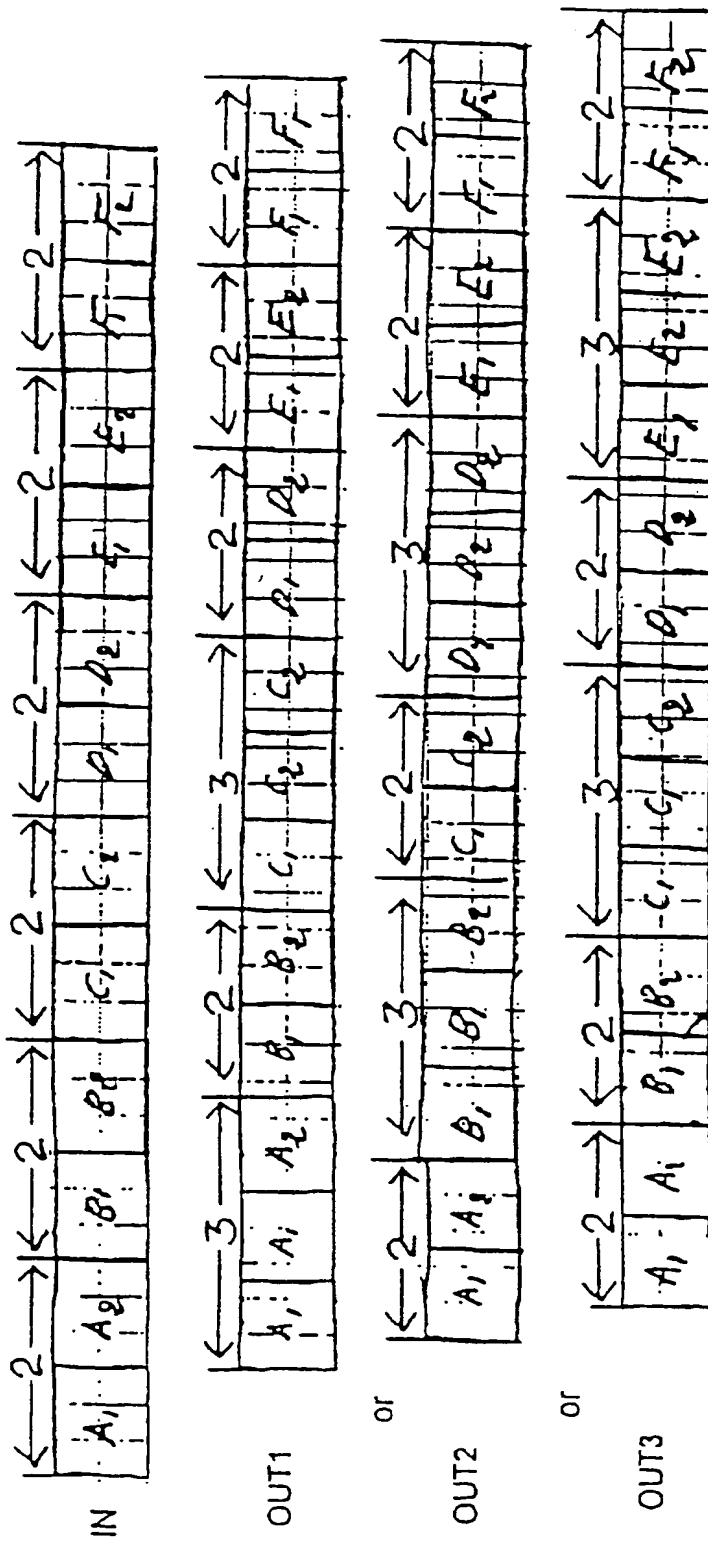 2 2 2 2 2 2
IN A1 A2 B1 B2 C1 C2 D1 D2 E1 E2 F1 F2
3 2 3 2 2 2
OUT1 A1 A1 A2 B1 B2 C1 C2 C2 D1 D2 E1 E2 F1 F1
or
2 3 2 3 2 2
OUT2 A1 A2 B1 B1 B2 C1 C2 D1 D2 D2 E1 E2 F1 F2
or
2 2 3 2 3 2
OUT3 A1 A1 B1 B2 C1 C1 C2 D1 D2 E1 E2 E2 F1 F2